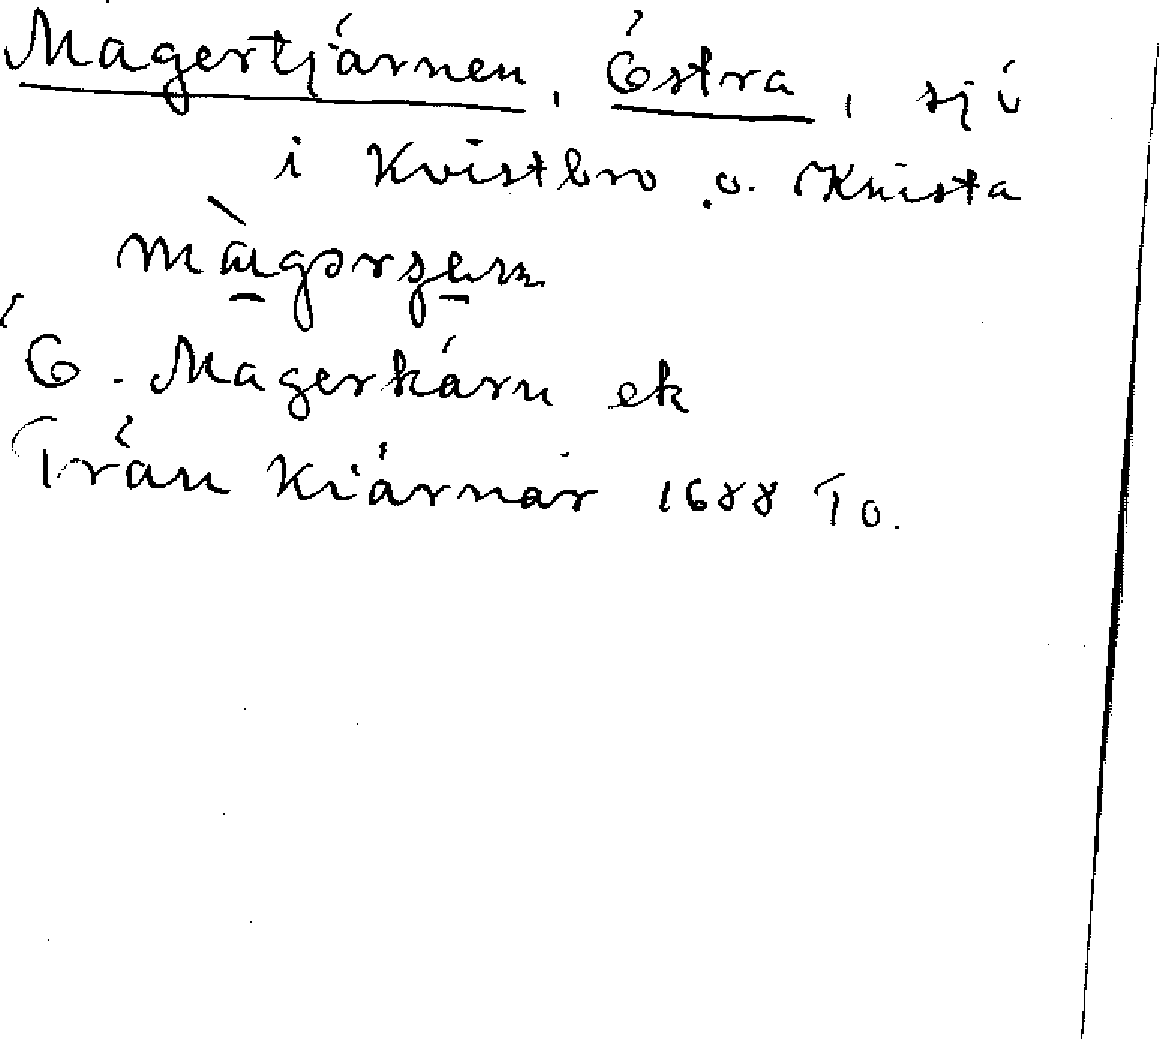 Magertjärnen, Östra, sjö
i Kvistbro o. Knista
màgərʒæn
Ö. Magerkärn ek
Trän Kiärnar 1688 To.